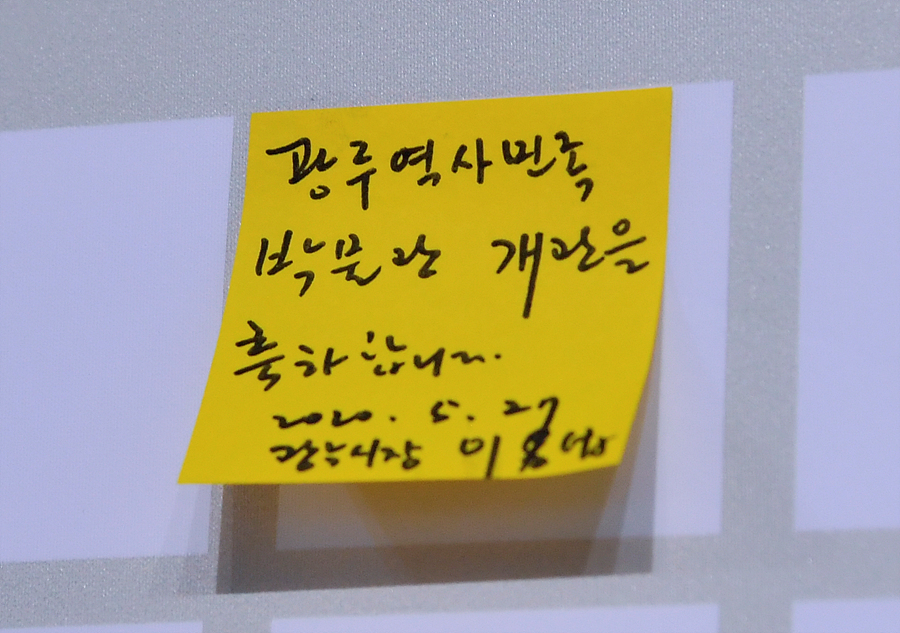 광주역사민속
박물관 개관을
축하합니다.
2020. 5. 27
광주시장 이용섭